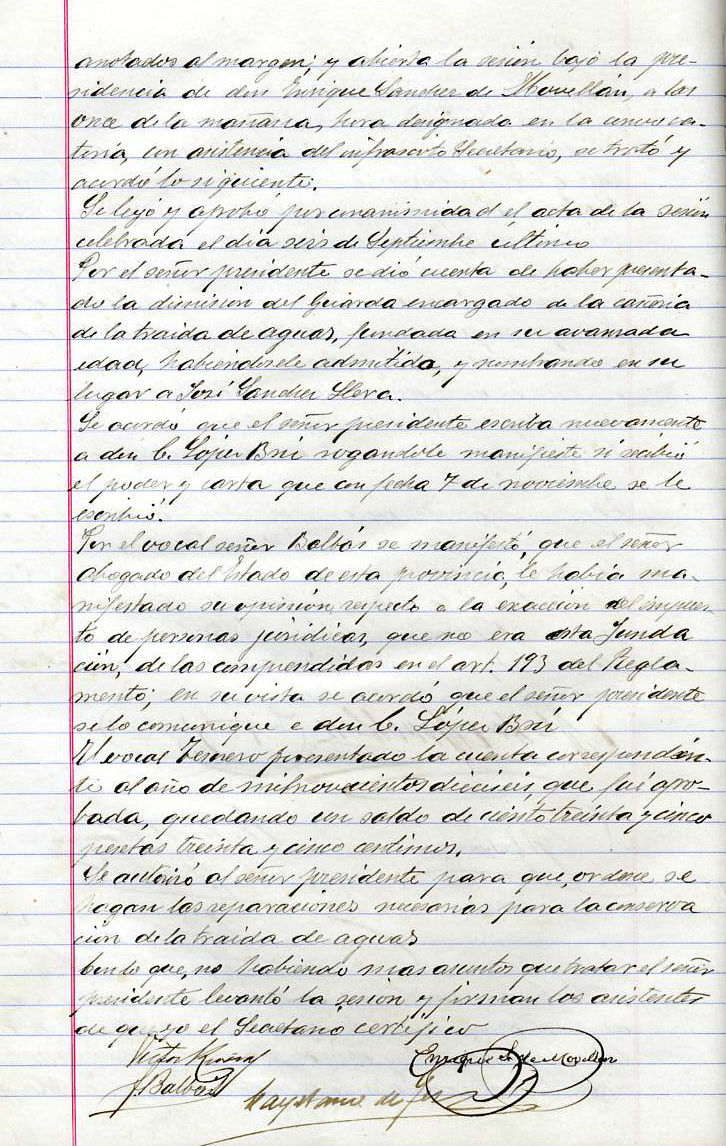 anotados al margen; y abierta la sesión bajo la pre-
sidencia de don Enrique Sanchez de Movellán, a las
once de la mañana, hora designada en la convoca-
toria, con asistencia del infrascrito Secretario, se trató y
acordó lo siguiente.
Se leyó y aprobó por unanimidad el acta de la sesión
celebrada el dia seis de Septiembre último
Por el señor presidente se dió cuenta de haber presenta-
do la dimision del Guarda encargado de la cañeria
de la traida de aguas, fundada en su avanzada
edad, habiendosele admitida, y nombrando en su
lugar a José Sanchez Llera.
Se acordó que el señor presidente escriba nuevamente
a don C. López Brú rogandole manifieste si recibió
el poder y carta que con fecha 7 de noviembre se le
escribió.
Por el vocal señor Balbás se manifestó, que el señor
Abogado del Estado de esta provincia, le habia ma-
nifestado su opinión respecto a la exacción del impues-
to de personas juridicas, que no era esta Funda
ción, de las comprendidas en el art. 193 del Regla-
mento; en su vista se acordó que el señor presidente
se lo comunique a don C. López Brú
El vocal Tesorero presentado la cuenta correspondien-
te al año de mil novecientos dieciseis, que fué apro-
bada, quedando un saldo de ciento treinta y cinco
pesetas treinta y cinco centimos.
Se autorizó al señor presidente para que, ordene se
hagan las reparaciones necesarias para la conserva
ción de la traida de aguas
Con lo que, no habiendo mas asuntos que tratar el señor
presidente levantó la sesión y firman los asistentes
de que yo el Secretario certifico
Victor
Enrique S. de Movellan
J. Balbás
Cayetano de